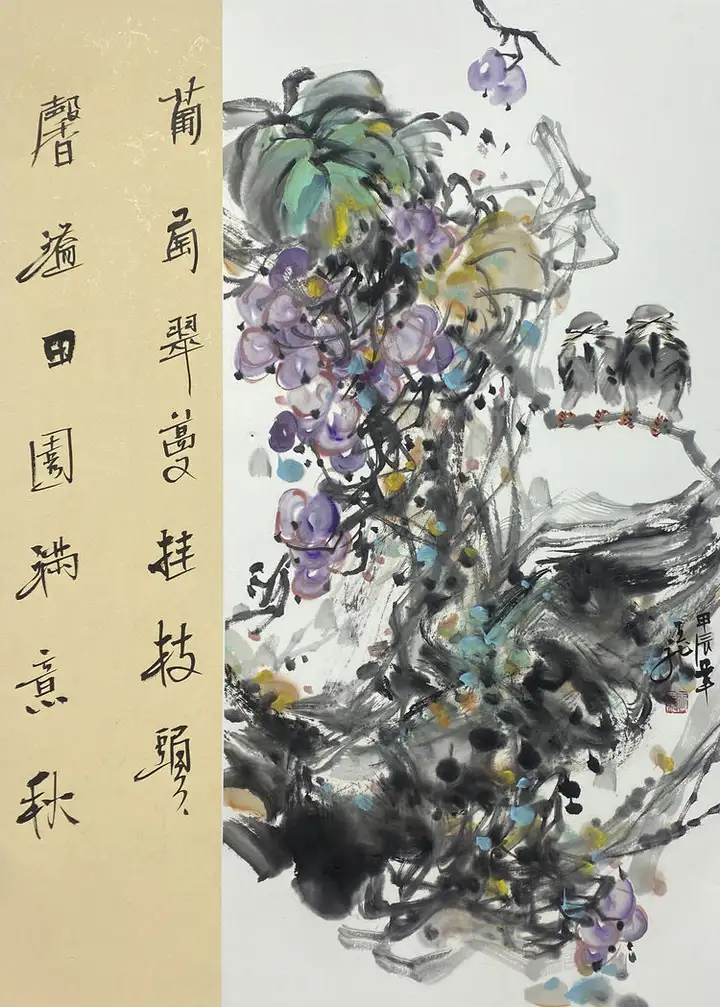 葡萄翠蔓挂枝頭
馨溢田園滿意秋
甲辰年